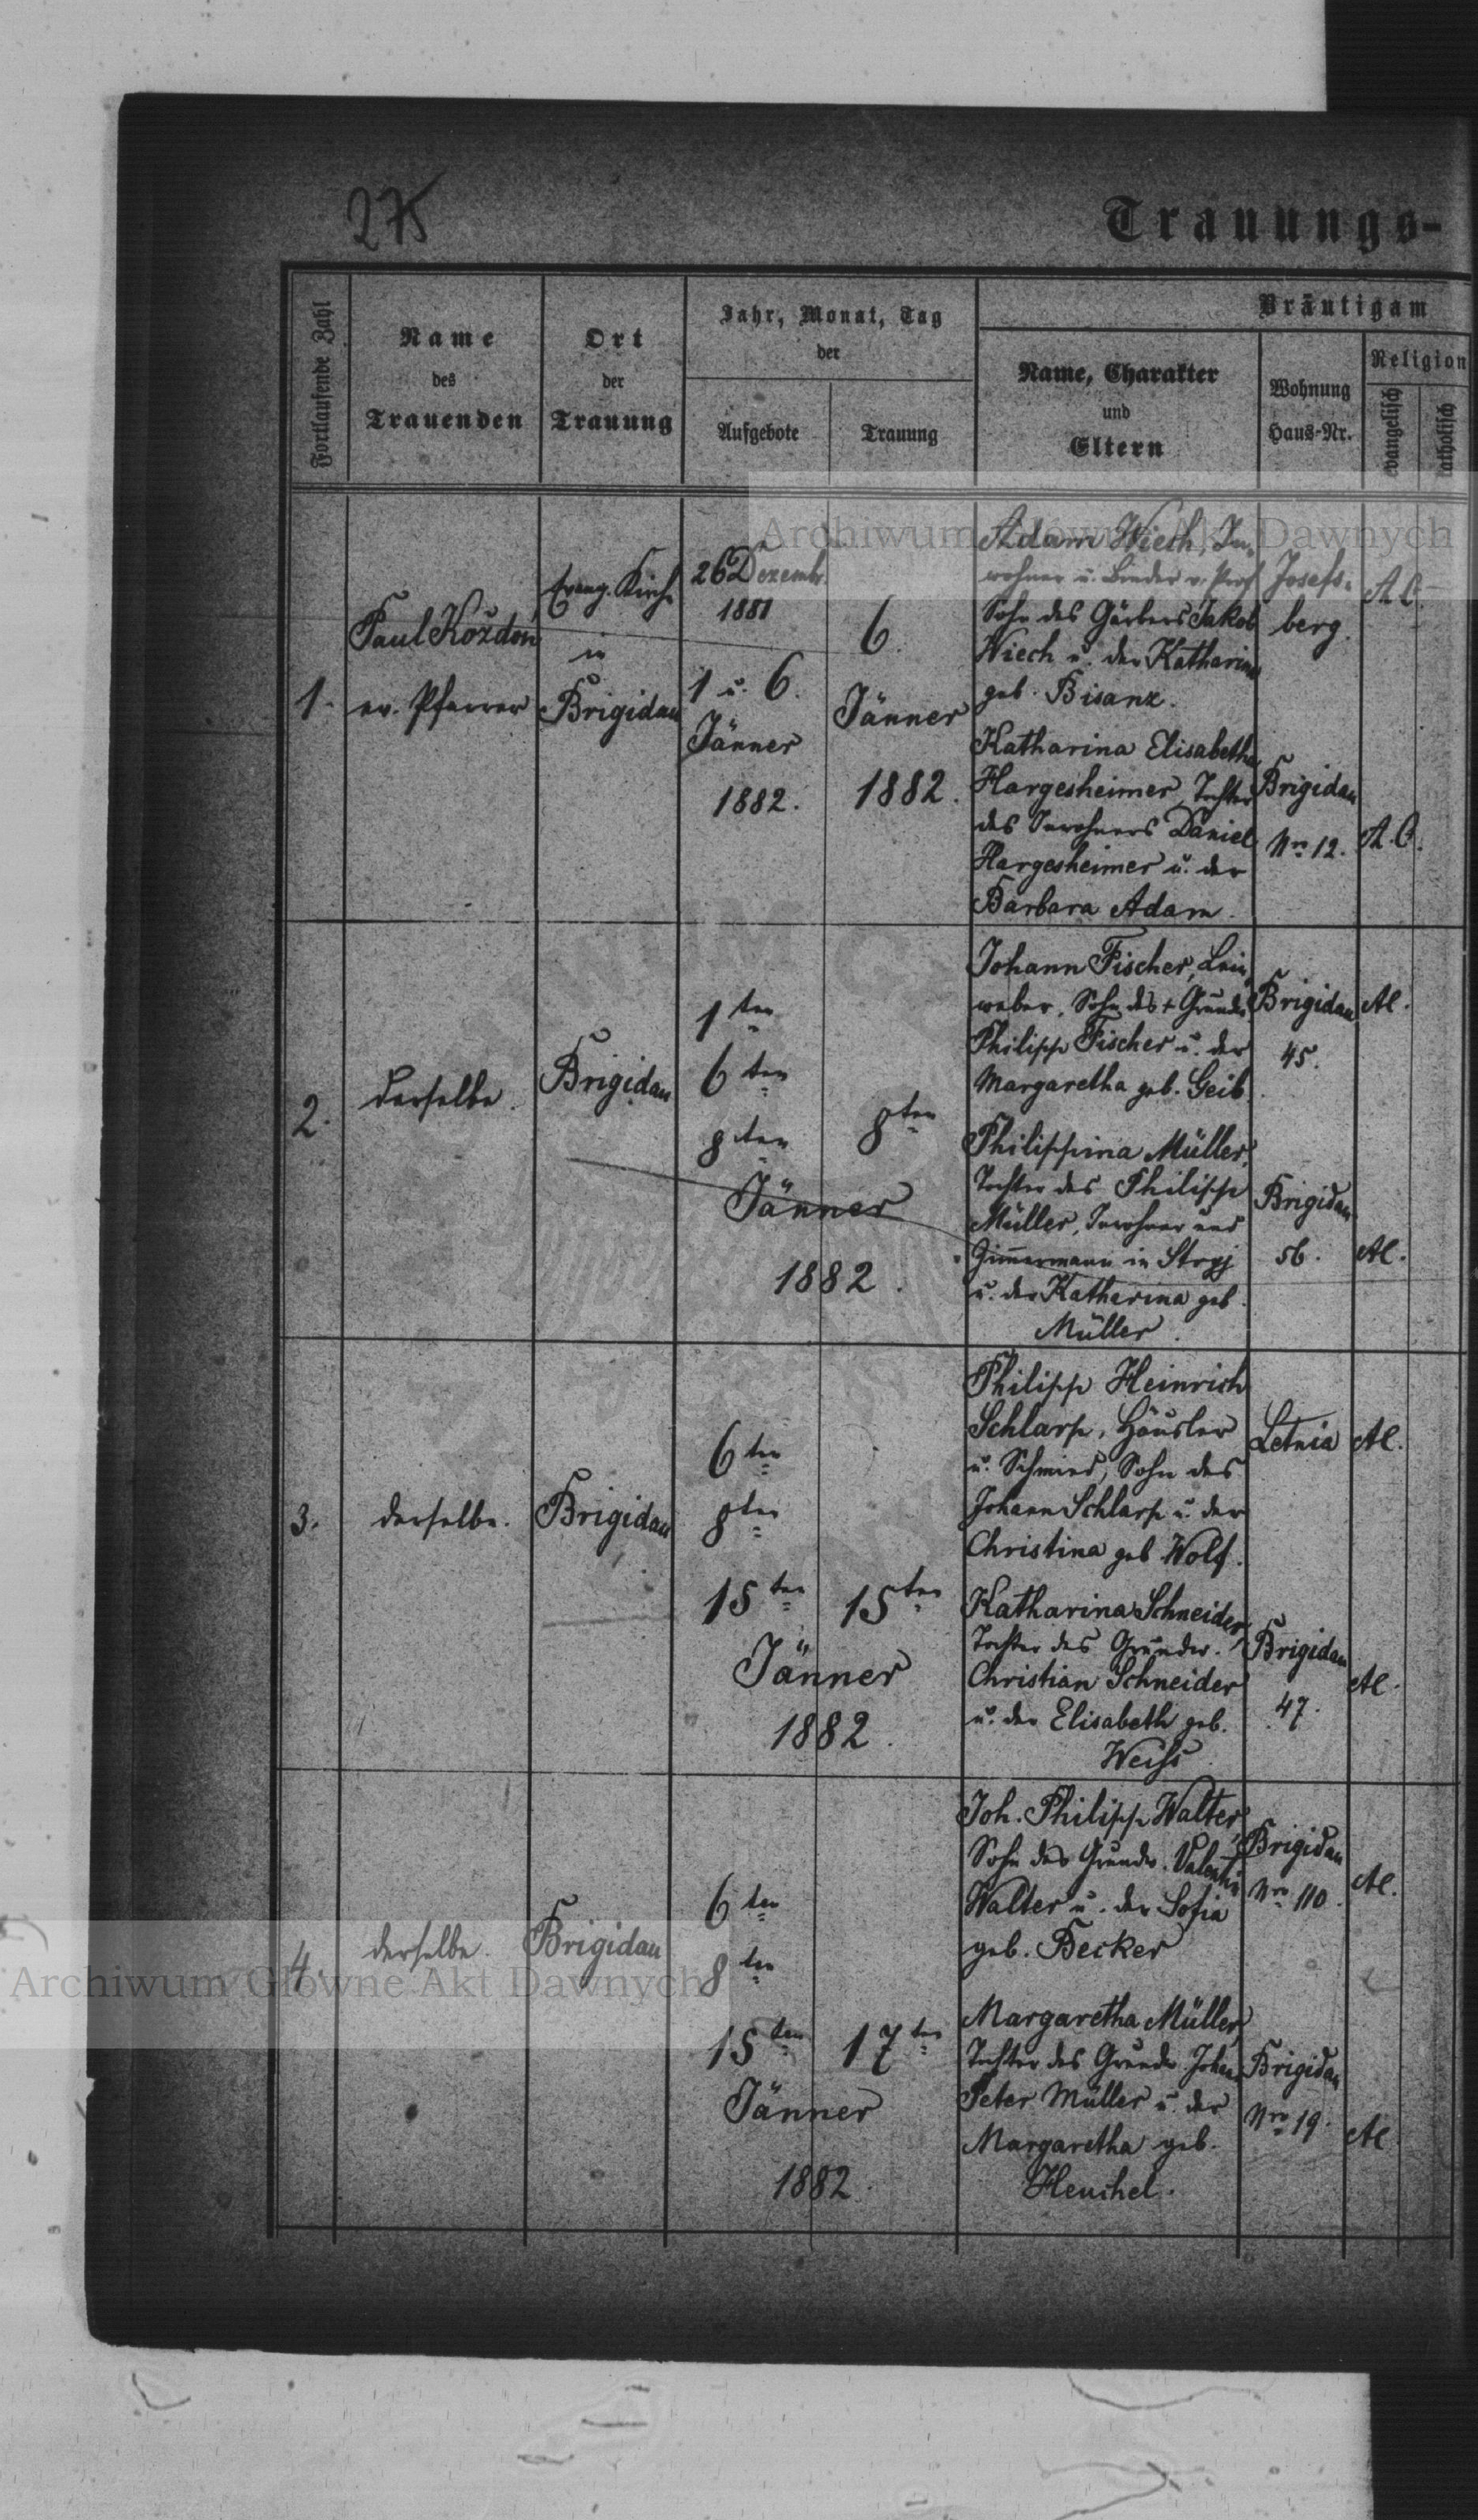 275
Trauungs-
Fortlaufende Zahl
Name
des
Trauenden
Ort
der
Trauung
Jahr, Monat, Tag
der
Aufgebote
Trauung
Bräutigam
Name, Charakter
und
Eltern
Wohnung
Haus-Nr.
Religion
evangelisch
katholisch
Archiwum Główne Akt Dawnych
1.
Paul Koždon
ev. Pfarrer
Evang. Kirche
in
Brigidau
26 Dezemb.
1881
1 u. 6.
Jänner
1882.
6.
Jänner
1882.
Adam Wiech, In-
wohner u. Binder v. Prof.
Sohn des Gärbers Jakob
Wiech u. der Katharina
geb. Bisanz.
Josefs-
berg.
A.C.
Katharina Elisabetha
Hargesheimer, Tochter
des Inwohners Daniel
Hargesheimer u. der
Barbara Adam.
Brigidau
Nro 12.
A.C.
2.
derselbe.
Brigidau
1ten
6ten
8ten
8ten
Jänner
1882.
Johann Fischer, Lein-
weber, Sohn des + Grundw.
Philipp Fischer u. der
Margaretha geb. Geib.
Brigidau
45.
AC.
Philippina Müller,
Tochter des Philipp
Müller, Inwohner und
Zimmermann in Stryj
u. der Katharina geb.
Müller.
Brigidau
56.
AC.
3.
derselbe.
Brigidau
6ten
8ten
15ten
15ten
Jänner
1882.
Philipp Heinrich
Schlarp, Häusler
u. Schmied, Sohn des
Johann Schlarp u. der
Christina geb Wolf.
Letnia
AC.
Katharina Schneider,
Tochter des Grundw.
Christian Schneider
u. der Elisabeth geb.
Weiss
Brigidau
47.
AC.
4.
derselbe.
Brigidau
6ten
8ten
15ten
17ten
Jänner
1882.
Joh. Philipp Walter,
Sohn des Grundw. Valentin
Walter u. der Sofia
geb. Becker
Brigidau
Nro 110.
AC.
Margaretha Müller,
Tochter des Grundw. Johann
Peter Müller u. der
Margaretha geb.
Heuchel.
Brigidau
Nro 19.
AC
Archiwum Główne Akt Dawnych